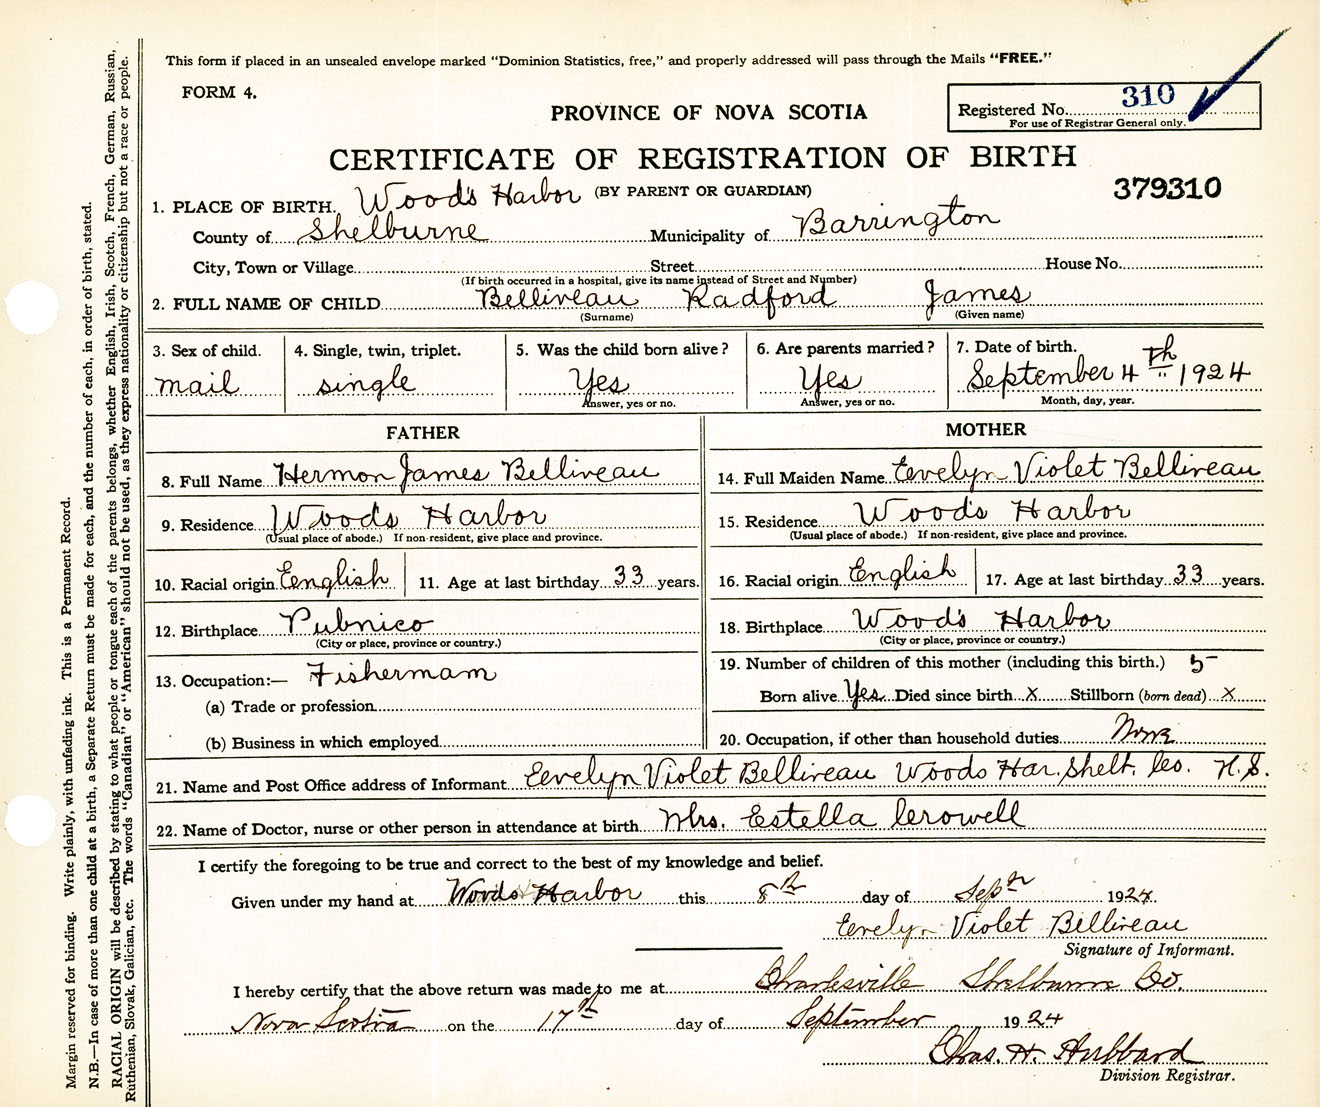 This form if placed in an unsealed envelope marked "Dominion Statistics, free," and properly addressed will pass through the Mails "FREE."
FORM 4.
PROVINCE OF NOVA SCOTIA
Registered No. 310
For use of Registrar General only.
CERTIFICATE OF REGISTRATION OF BIRTH
(BY PARENT OR GUARDIAN)
379310
1. PLACE OF BIRTH. Wood's Harbor
County of Shelburne Municipality of Barrington
City, Town or Village Street House No.
(If birth occurred in a hospital, give its name instead of Street and Number)
2. FULL NAME OF CHILD Belliveau Radford James
(Surname) (Given name)
3. Sex of child. 4. Single, twin, triplet. 5. Was the child born alive? 6. Are parents married? 7. Date of birth.
mail single Yes Yes September 4th 1924
Answer, yes or no. Answer, yes or no. Month, day, year.
FATHER MOTHER
8. Full Name Hermon James Belliveau 14. Full Maiden Name Eevelyn Violet Belliveau
9. Residence Woods Harbor 15. Residence Woods Harbor
(Usual place of abode.) If non-resident, give place and province. (Usual place of abode.) If non-resident, give place and province.
10. Racial origin English 11. Age at last birthday 33 years. 16. Racial origin English 17. Age at last birthday 33 years.
12. Birthplace Pubnico 18. Birthplace Wood's Harbor
(City or place, province or country.) (City or place, province or country.)
13. Occupation:— Fishermam 19. Number of children of this mother (including this birth.) 5
(a) Trade or profession Born alive Yes Died since birth x Stillborn (born dead) x
(b) Business in which employed 20. Occupation, if other than household duties None
21. Name and Post Office address of Informant Eevelyn Violet Belliveau Woods Har. Shelt. Co. N.S.
22. Name of Doctor, nurse or other person in attendance at birth Mrs. Estella Crowell
I certify the foregoing to be true and correct to the best of my knowledge and belief.
Given under my hand at Woods Harbor this 8th day of Sepn 1924.
Eevelyn Violet Belliveau
Signature of Informant.
I hereby certify that the above return was made to me at Charlesville Shelburne Co.
Nova Scotia on the 17th day of September 1924
Chas. H. Hubbard
Division Registrar.
Margin reserved for binding. Write plainly, with unfading ink. This is a Permanent Record.
N.B.—In case of more than one child at a birth, a Separate Return must be made for each, and the number of each, in order of birth, stated.
RACIAL ORIGIN will be described by stating to what people or tongue each of the parents belongs, whether English, Irish, Scotch, French, German, Russian,
Ruthenian, Slovak, Galician, etc. The words "Canadian" or "American" should not be used, as they express nationality or citizenship but not a race or people.